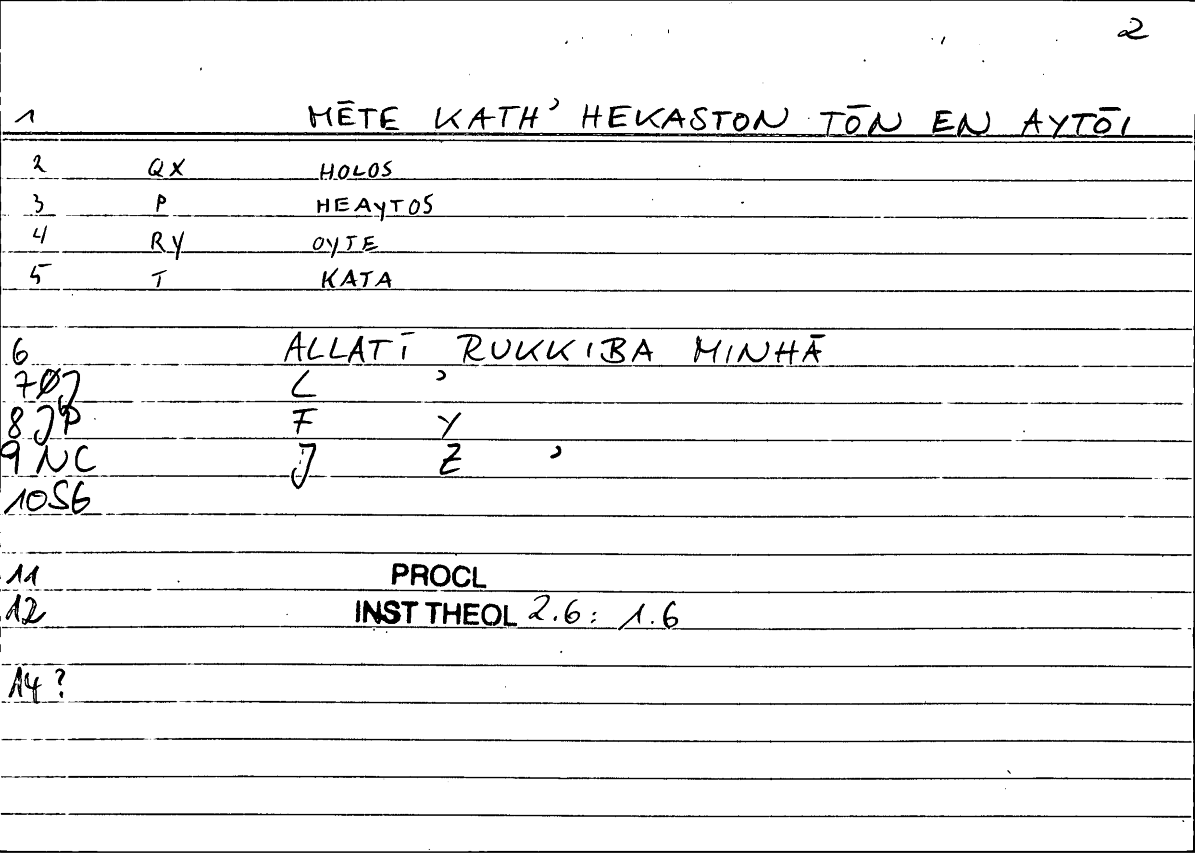 2
1 MĒTE KATH' HEKASTON TŌN EN AYTŌI
2 QX HOLOS
3 P HEAYTOS
4 RY OYTE
5 T KATA
6 ALLATĪ RUKKIBA MINHĀ
7 ØJ L '
8 JP F Y
9 NC J Z '
10 SG
11 PROCL
12 INST THEOL 2.6: 1.6
14?